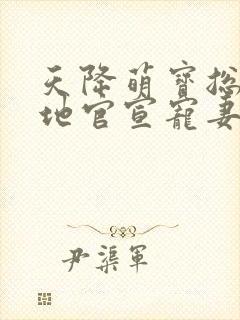 天降萌寶总
地官宣寵妻
尹渠軍